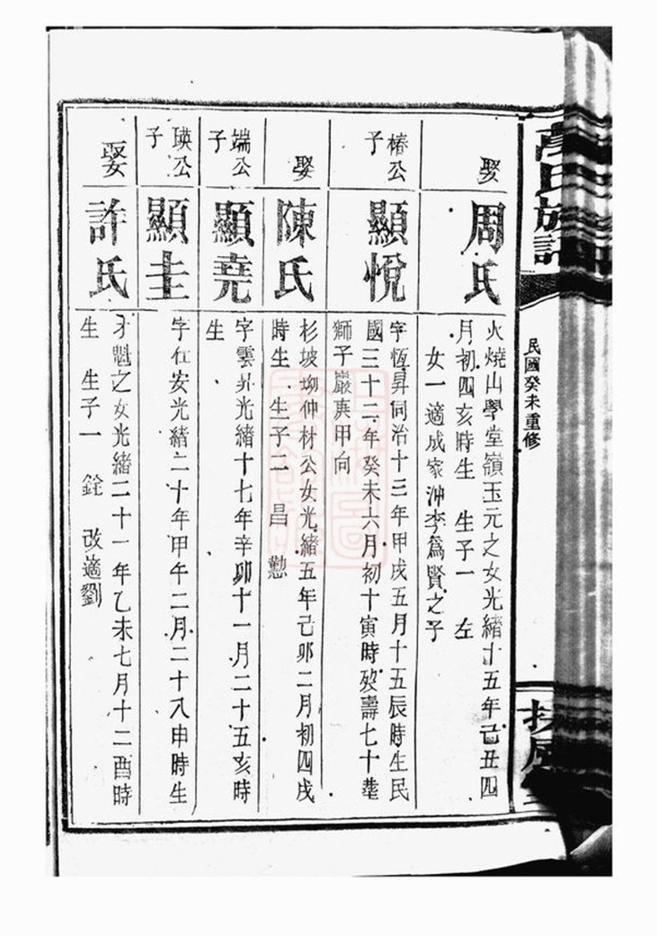 氏族譜
民國癸未重修
扶風
娶
周氏
火燒山學堂嶺玉元之女光緒十五年己丑四
月初四亥時生 生子一 左
女一適成家沖李為賢之子
椿公
子
顯悅
字恆昇同治十三年甲戌五月十五辰時生民
國三十二年癸未六月初十寅時歿壽七十塟
獅子巖庚甲向
娶
陳氏
杉坡坳仲材公女光緒五年己卯二月初四戌
時生 生子二 昌 懃
端公
子
顯堯
字雲昇光緒十七年辛卯十一月二十五亥時
生
瑛公
子
顯圭
字仕安光緒二十年甲午二月二十八申時生
娶
許氏
才魁之女光緒二十一年乙未七月十二酉時
生 生子一 銓 改適劉